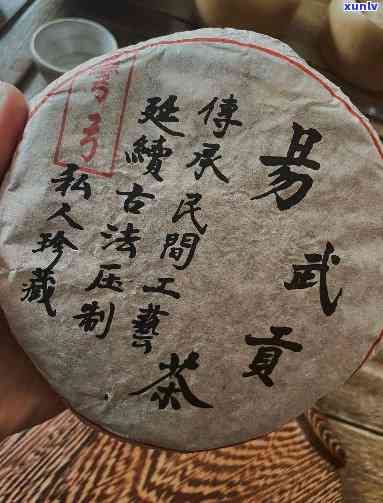 易武貢茶
傳承民間工藝
延續古法压制
私人珍藏
弓
xunlv